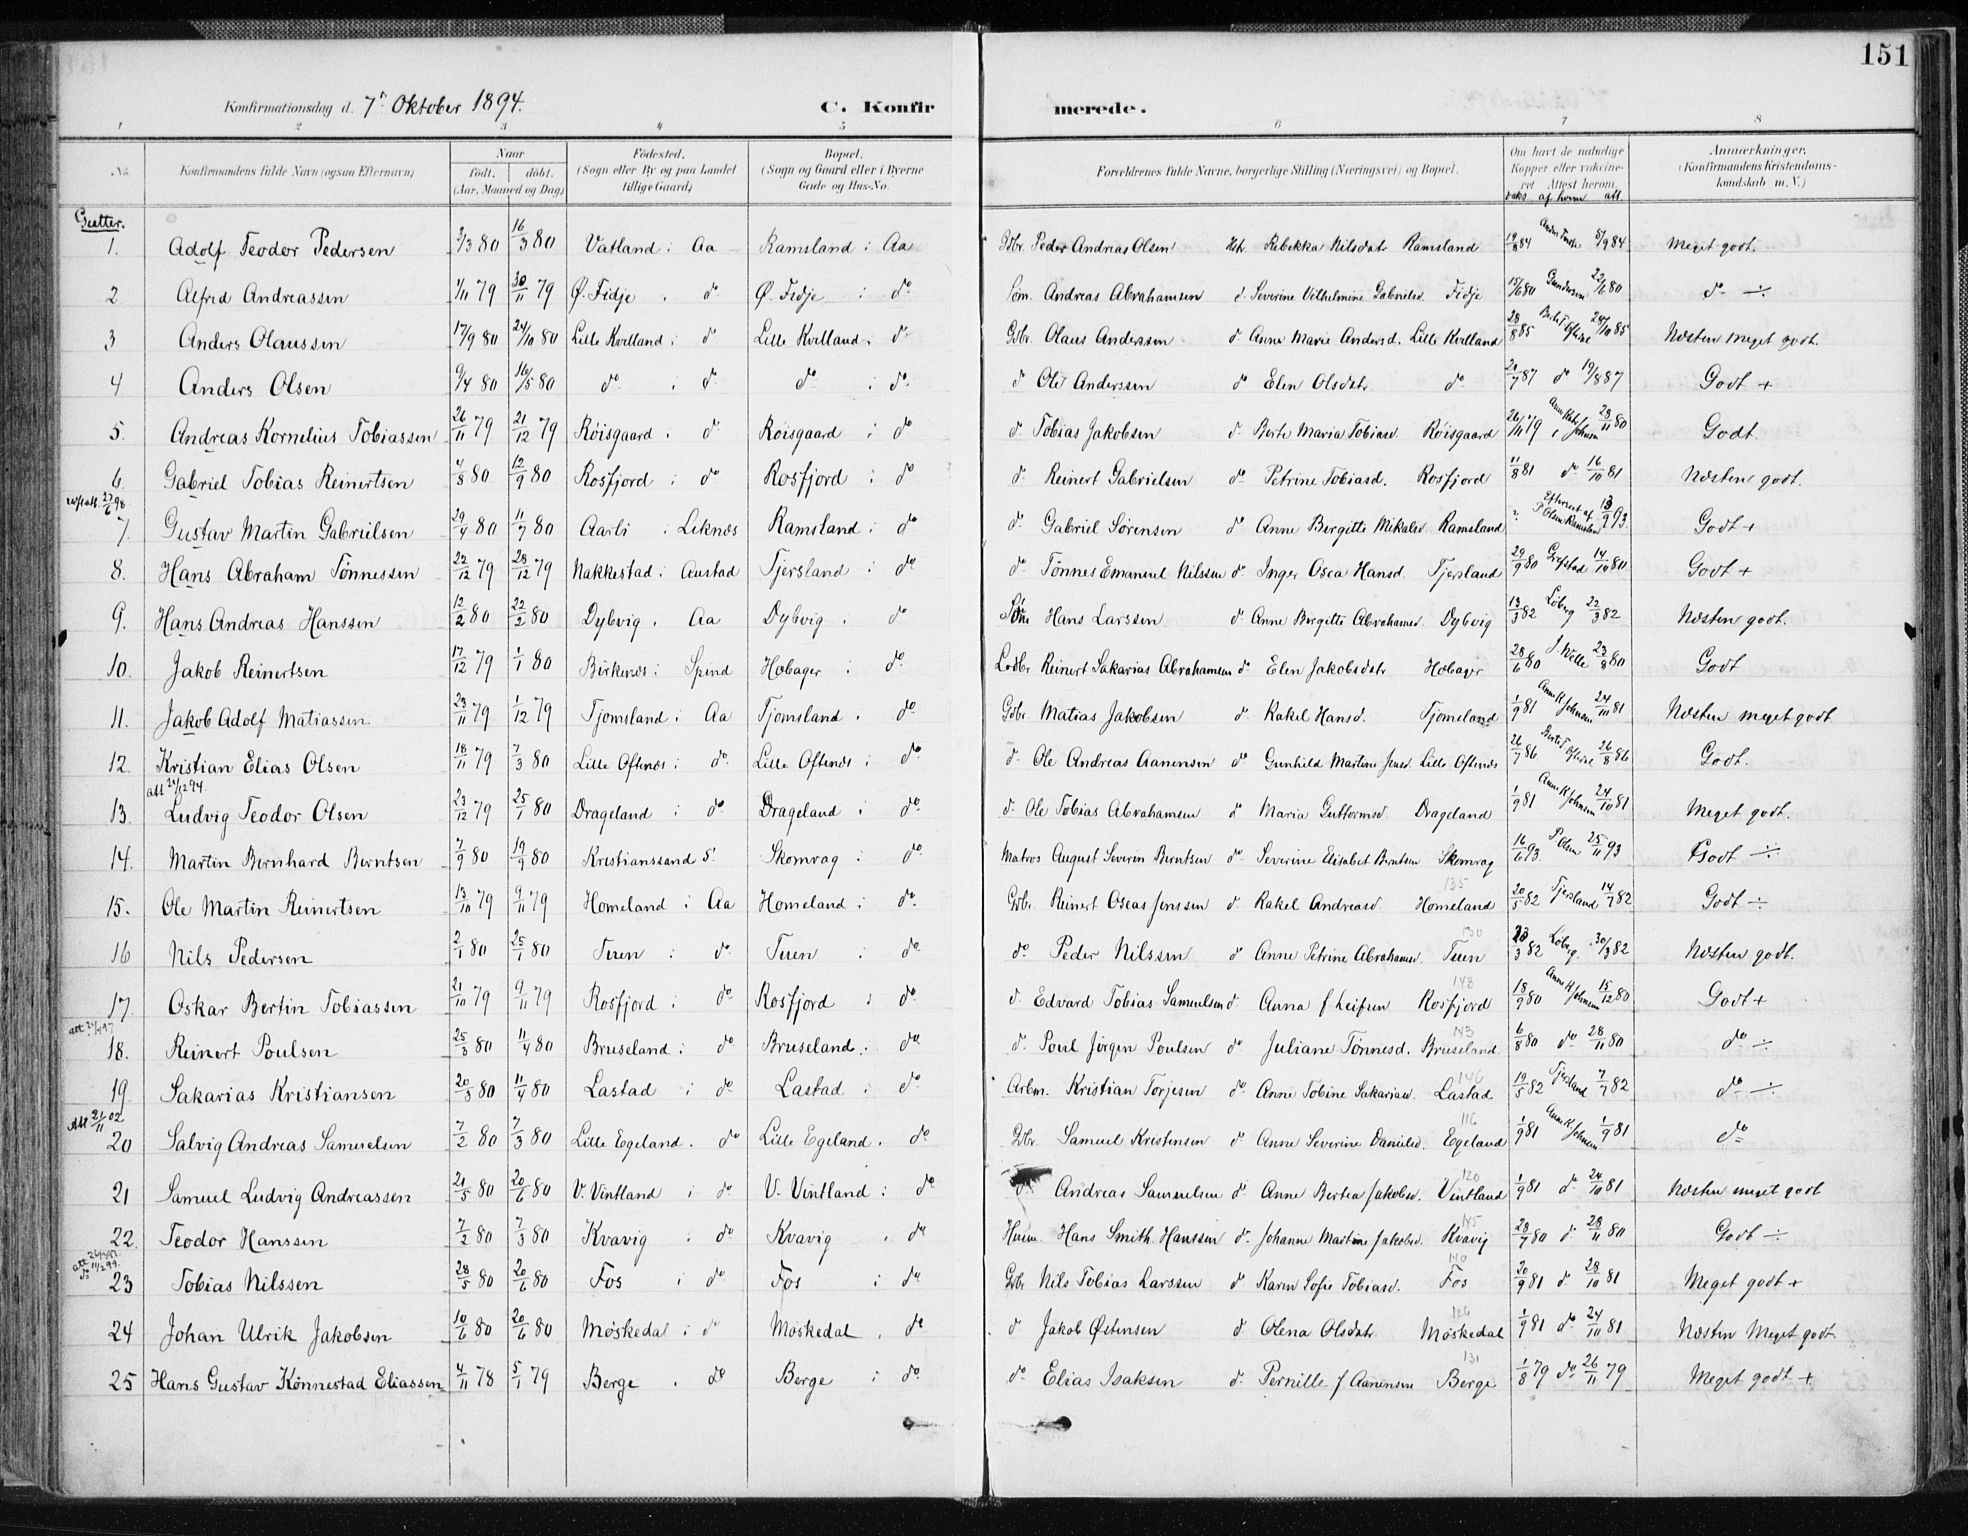 151
Konfirmationsdag d. 7de Oktober 1894. C. Konfirmerede.
1 2 3 4 5 6 7 8
No. Konfirmandens fulde Navn (ogsaa Efternavn) Naar født. døbt. (Aar, Maaned og Dag) Fødested. (Sogn eller By og paa Landet tillige Gaard) Bopæl. (Sogn og Gaard eller i Byerne Gade og Hus-No. Forældrenes fulde Navne, borgerlige Stilling (Næringsvei) og Bopæl. Om havt de naturlige Kopper eller vaccineret. Attest herom. vaks. af hvem att. Anmærkninger. (Konfirmandens Kristendomskundskab m. V.)
Gutter.
1. Adolf Teodor Pedersen 3/3 80 16/3 80 Vatland i Aa Ramsland i Aa Gdbr. Peder Andreas Olsen Hstr. Rebekka Nilsdatr Ramsland 19/8 84 8/9 84 Meget godt.
2 Alfred Andreassen 1/11 79 30/11 79 Ø. Fidje . do Ø. Fidje i do Søm. Andreas Abrahamsen d. Severine Vilhelmine Gabrielsd. Fidje 15/6 80 Gundersen 22/6 80 do ÷
3 Anders Olaussen 17/9 80 24/10 80 Lille Kvilland i do Lille Kvilland i do Gdbr. Olaus Anderssen d Anne Marie Andersd. Lille Kvilland 28/8 85 24/10 85 Næsten meget godt.
4 Anders Olsen 9/4 80 16/5 80 do i do do i do d Ole Anderssen do Elen Olsdatr. do 20/7 87 do 19/8 87 Godt +
5. Andreas Kornelius Tobiassen 26/11 79 21/12 79 Røisgaard i do Røisgaard i do d. Tobias Jakobsen d. Berte Maria Tobiasd. Røisgaard 26/11 79 28/11 80 Godt.
6. Gabriel Tobias Reinertsen 4/8 80 12/9 80 Rosfjord i do Rosfjord i do d. Reinert Gabrielsen do Petrine Tobiasd. Rosfjord 11/8 81 do 16/10 81 Næsten godt.
7. Gustav Martin Gabrielsen 29/4 80 11/7 80 Aarli i Leknæs Ramsland i do d. Gabriel Sørensen do Anne Birgitte Mikalsd. Ramsland ? Efterseet af P Olsen Ramsland 13/9 93. Godt +
8. Hans Abraham Tønnessen 22/12 79 28/12 79 Nakkestad i Austad Tjersland i do do Tønnes Emanuel Nilssen do Inger Osea Hansd. Tjersland 29/9 80 Grefstad 14/10 80 Godt +
9. Hans Andreas Hanssen 12/2 80 22/2 80 Dybvig . Aa Dybvig . do Søm Hans Larssen d. Anne Birgitte Abrahamsd. Dybvig 13/3 82 Løberg 22/3 82 Næsten godt.
10. Jakob Reinertsen 17/12 79 1/1 80 Birkenes i Spind Høbager i do Lodbr. Reinert Sakarias Abrahamsen d. Elen Jakobsdatr Høbager 28/6 80 J. Welle 23/8 80 Godt
11. Jakob Adolf Matiassen 23/11 79 1/12 79 Tjomsland i Aa Tjomsland . do Gdbr Matias Jakobsen d. Rakel Hansd. Tjomsland 1/9 81 Anne K Johnsen 24/10 81 Næsten meget godt
12. Kristian Elias Olsen 18/11 79 7/3 80 Lille Oftenæs i do Lille Oftenæs i do d. Ole Andreas Aanensen do Gunhild Martine Jensd. Lille Oftenæs 26/7 86 26/8 86 Godt.
att 24/12 94.
13. Ludvig Teodor Olsen 23/12 79 25/1 80 Drageland i do Drageland i do d. Ole Tobias Abrahamsen d Maria Guttormsd. Drageland 1/9 81 Anne K Johnsen 24/10 81 Meget godt.
14. Martin Bernhard Berntsen 7/9 80 19/9 80 Kristianssand S. Skomrag i do Matros August Severin Berntsen do Severine Elisabet Berntsen Skomrag 16/6 93. P Olsen 25/11 93 Godt ÷
15. Ole Martin Reinertsen 13/10 79 9/11 79 Homeland i Aa Homeland i do Gdbr. Reinert Oseas Jenssen d. Rakel Andreasd. Homeland 135 20/5 82 Tjersland 14/7 82 Godt ÷
16 Nils Pedersen 2/1 80 25/1 80 Tuen i do Tuen i do do Peder Nilssen d Anne Petrine Abrahamsd. Tuen 130 23/3 82 Løberg. 30/3 82 Næsten godt.
17. Oskar Bertin Tobiassen 21/10 79 9/11 79 Rosfjord i do Rosfjord i do d. Edvard Tobias Samuelsen d. Anna f Leifsen Rosfjord 148 18/9 80 Anne K Johnsen 15/12 80 Godt +
18. Reinert Poulsen 25/3 80 11/4 80 Bruseland i do Bruseland i do d. Poul Jørgen Poulsen do Juliane Tønnesd. Bruseland 143 6/8 80 do 28/11 80 do ÷
19. Sakarias Kristiansen 20/3 80 11/4 80 Lastad i do Lastad i do Arbm. Kristian Torjesen do Anne Tobine Sakariasd. Lastad 146 19/5 82 Tjersland 7/7 82 do ÷
Att 21/11 02
20 Salvig Andreas Samuelsen 7/2 80 7/3 80 Lille Egeland . do Lille Egeland . do Gdbr. Samuel Kristensen d Anne Severine Danielsd. Egeland 116 1/9 81 Anne K Johnsen 1/9 81 do
21 Samuel Ludvig Andreassen 21/5 80 20/6 80 V. Vintland i do V. Vintland i do d. Andreas Samuelsen d. Anne Bertea Jakobsd. Vintland 120 1/9 81 d. 24/10 81 Næsten meget godt
22. Teodor Hanssen 7/2 80 7/3 80 Kvavig i do Kvavig . do Husm. Hans Smith Hanssen d. Johanne Martine Jakobsd. Kvavig 145 28/7 80 d 28/11 80 Godt ÷
23 Tobias Nilssen 28/5 80 20/6 80 Fos i do Fos i do Gdbr Nils Tobias Larssen do Karen Sofie Tobiasd. Fos 140 20/9 81 d 28/10 81 Meget godt +
24 Johan Ulrik Jakobsen 10/6 80 20/6 80 Møskedal i do Møskedal . do d Jakob Østensen d Olena Olsdatr. Møskedal 126 1/9 81 do 24/10 81 Næsten Meget godt
25 Hans Gustav Kønnestad Eliassen 4/11 78 5/1 79 Berge . do Berge i do do Elias Isaksen d. Pernille f Aanensen Berge 131 1/8 79 do 26/11 79 Meget godt +